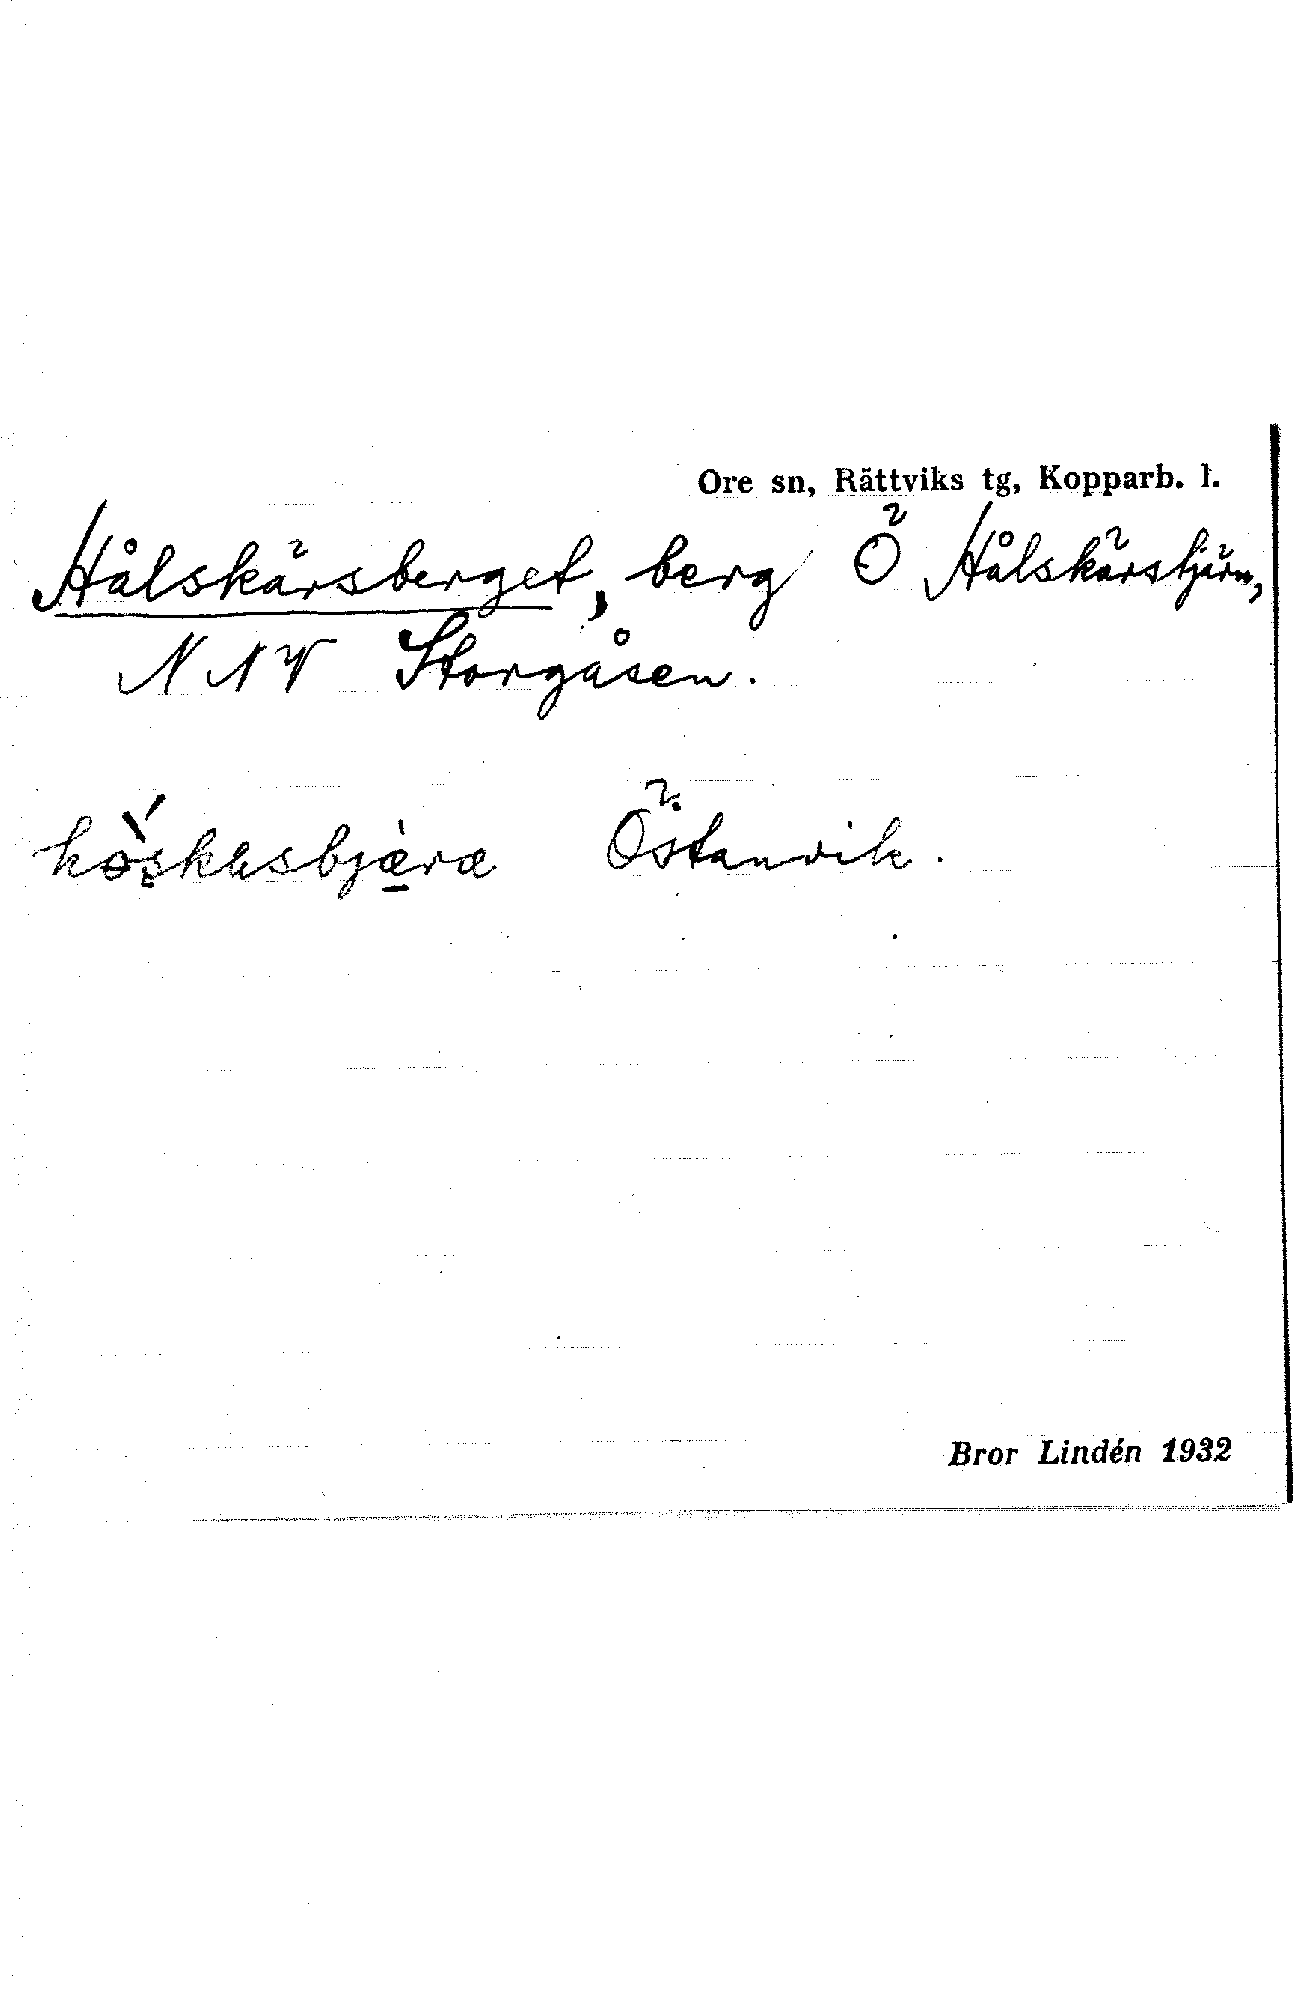 Ore sn, Rättviks tg, Kopparb. l.
Hålskärsberget, berg Ö Hålskärstjärn,
NNV Storgåsen.
Östanvik.
Bror Lindén 1932